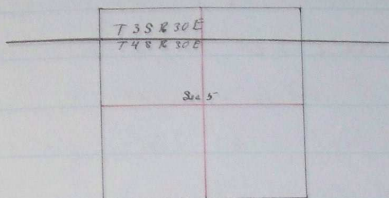 T 3 S R 30 E
T 4 S R 30 E
Sec 5